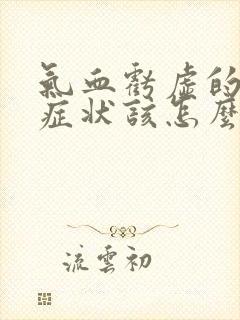 氣血虧虛的
症狀該怎麼
流雲初